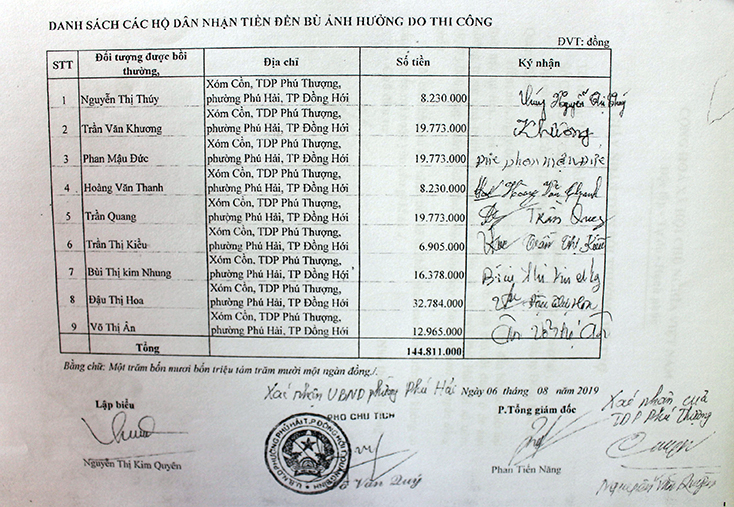 DANH SÁCH CÁC HỘ DÂN NHẬN TIỀN ĐỀN BÙ ẢNH HƯỞNG DO THI CÔNG
ĐVT: đồng
STT Đối tượng được bồi thường, Địa chỉ Số tiền Ký nhận
1 Nguyễn Thị Thúy Xóm Cồn, TDP Phú Thượng, phường Phú Hải, TP Đồng Hới 8.230.000 Thúy Nguyễn Thị Thúy
2 Trần Văn Khương Xóm Cồn, TDP Phú Thượng, phường Phú Hải, TP Đồng Hới 19.773.000 Khương
3 Phan Mậu Đức Xóm Cồn, TDP Phú Thượng, phường Phú Hải, TP Đồng Hới 19.773.000 Đức phan mậu Đức
4 Hoàng Văn Thanh Xóm Cồn, TDP Phú Thượng, phường Phú Hải, TP Đồng Hới 8.230.000 Hoàng Văn Thanh
5 Trần Quang Xóm Cồn, TDP Phú Thượng, phường Phú Hải, TP Đồng Hới 19.773.000 Trần Quang
6 Trần Thị Kiều Xóm Cồn, TDP Phú Thượng, phường Phú Hải, TP Đồng Hới 6.905.000 Trần Thị Kiều
7 Bùi Thị kim Nhung Xóm Cồn, TDP Phú Thượng, phường Phú Hải, TP Đồng Hới 16.378.000
8 Đậu Thị Hoa Xóm Cồn, TDP Phú Thượng, phường Phú Hải, TP Đồng Hới 32.784.000 Đậu Thị Hoa
9 Võ Thị Ân Xóm Cồn, TDP Phú Thượng, phường Phú Hải, TP Đồng Hới 12.965.000 Ân Võ Thị Ân
Tổng 144.811.000
Bằng chữ: Một trăm bốn mươi bốn triệu tám trăm mười một ngàn đồng./.
Xác nhận UBND phường Phú Hải Ngày 06 tháng 08 năm 2019
Lập biểu
PHÓ CHỦ TỊCH
P.Tổng giám đốc
Xác nhận của
TDP Phú Thượng
Nguyễn Thị Kim Quyên
Văn Quý
Phan Tiến Năng
Nguyễn Văn